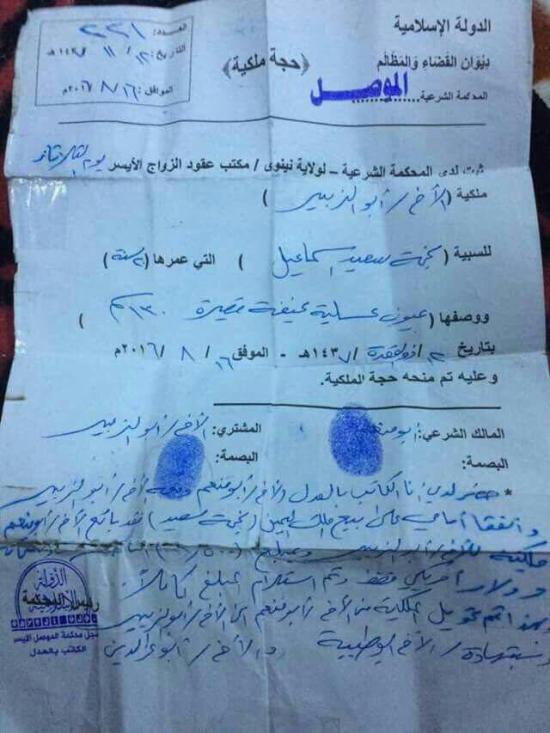 الدولة الإسلامية
ديوان القضاء والمظالم
المحكمة الشرعية الموصل
﴿حجة ملكية﴾
العدد: ٢٢١
التاريخ: ١٢/ ١١/ ١٤٣٧هـ
الموافق: ١٦/ ٨/ ٢٠١٦م
ثبت لدى المحكمة الشرعية - لولاية نينوى / مكتب عقود الزواج الأيسر
ملكية (الأخ/ أبو الزبير )
للسبية ( سعيد اسماعيل ) التي عمرها (٢٠سنة)
ووصفها (عيون عسلية ضعيفة قصيرة ١٣٠سم )
بتاريخ / ذو القعدة / ١٤٣٧هـ - الموافق ١٦/ ٨ /٢٠١٦م
وعليه تم منحه حجة الملكية.
المالك الشرعي: المشتري: الأخ/ أبو الزبير
البصمة: البصمة:
* حضر لدي أنا الكاتب بالعدل الأخ/ والأخ/ أبو الزبير
واتفقا أمامي على بيع ملك اليمين ( سعيد) فقد باع الأخ/
ملكيته للأخ/ أبو الزبير وبمبلغ
دولار أمريكي فقط وتم استلام المبلغ كاملاً
وبهذا تم تحويل الملكية من الأخ/ الى الأخ/ أبو الزبير
وبشهادة/ الأخ والأخ/ أبو عز الدين
الدولة الإسلامية
رئيس المحكمة
سجل محكمة الموصل الأيسر
الكاتب بالعدل